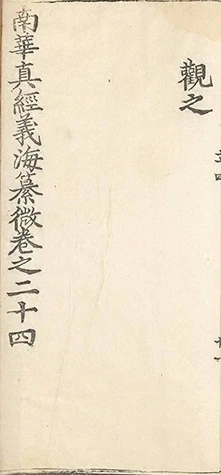 觀之
南華真經義海纂微卷之二十四